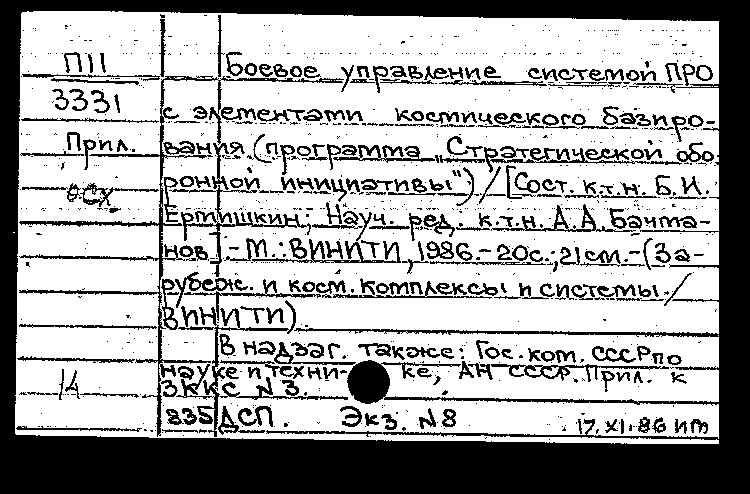 П11 Боевое управление системой ПРО
3331 с элементами космического базиро-
Прил. вания (программа „Стратегической обо-
ОСХ ронной инициативы") / [Сост. к.т.н. Б.И.
Ермишкин; Науч. ред. к.т.н. А.А. Бачма-
нов]. - М.: ВИНИТИ, 1986. - 20с.; 21см. - (За-
рубеж. и косм. комплексы и системы. /
ВИНИТИ)
В надзаг. также: Гос. ком. СССР по
14 науке и техни- ке, АН СССР. Прил. к
ЗККС N 3.
835 ДСП. Экз. N8 17.XI.86 ит